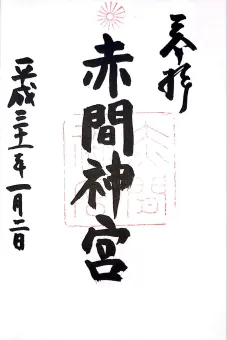 奉拝
赤間神宮
平成三十一年一月二日